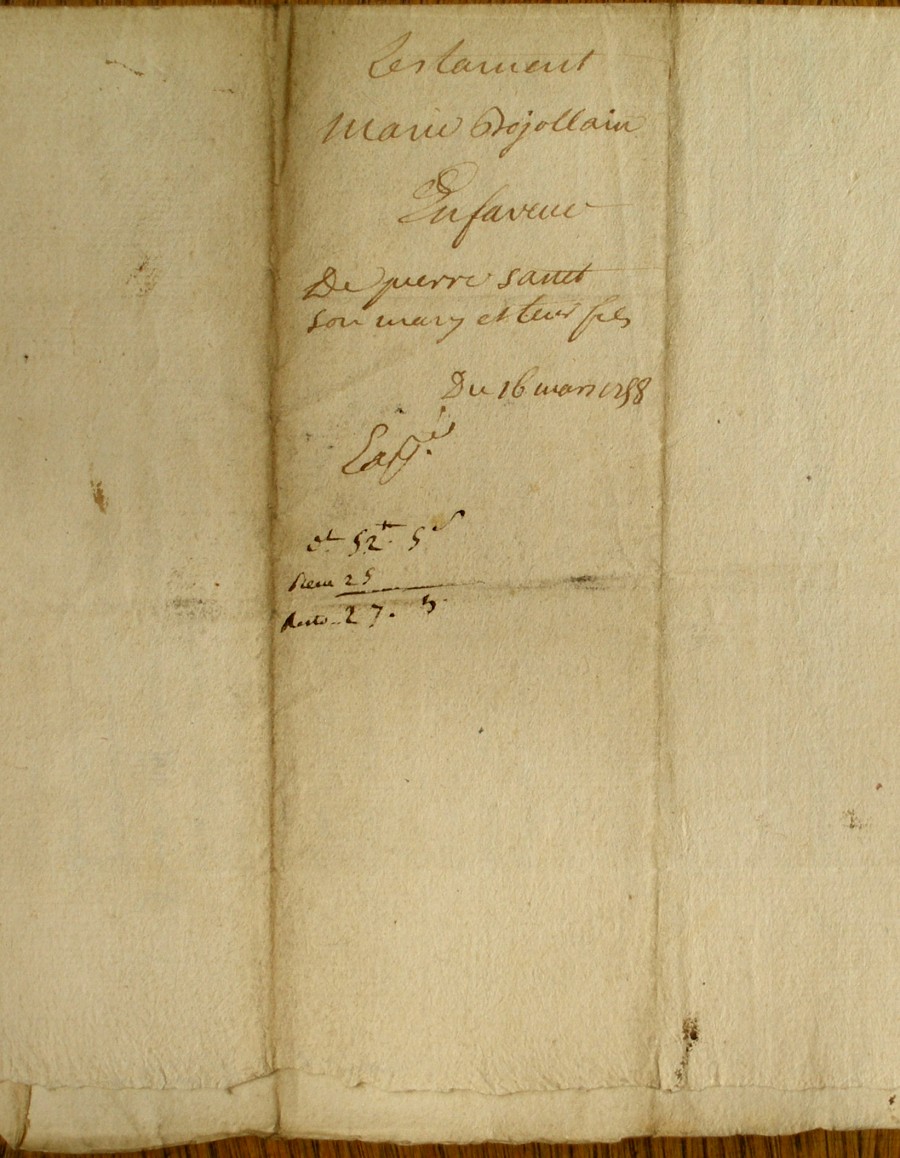 Testament
Marie
En faveur
De pierre
son mary et leur fils
Du 16 mars 1758
52 5
Receu 25
Reste 27. 5